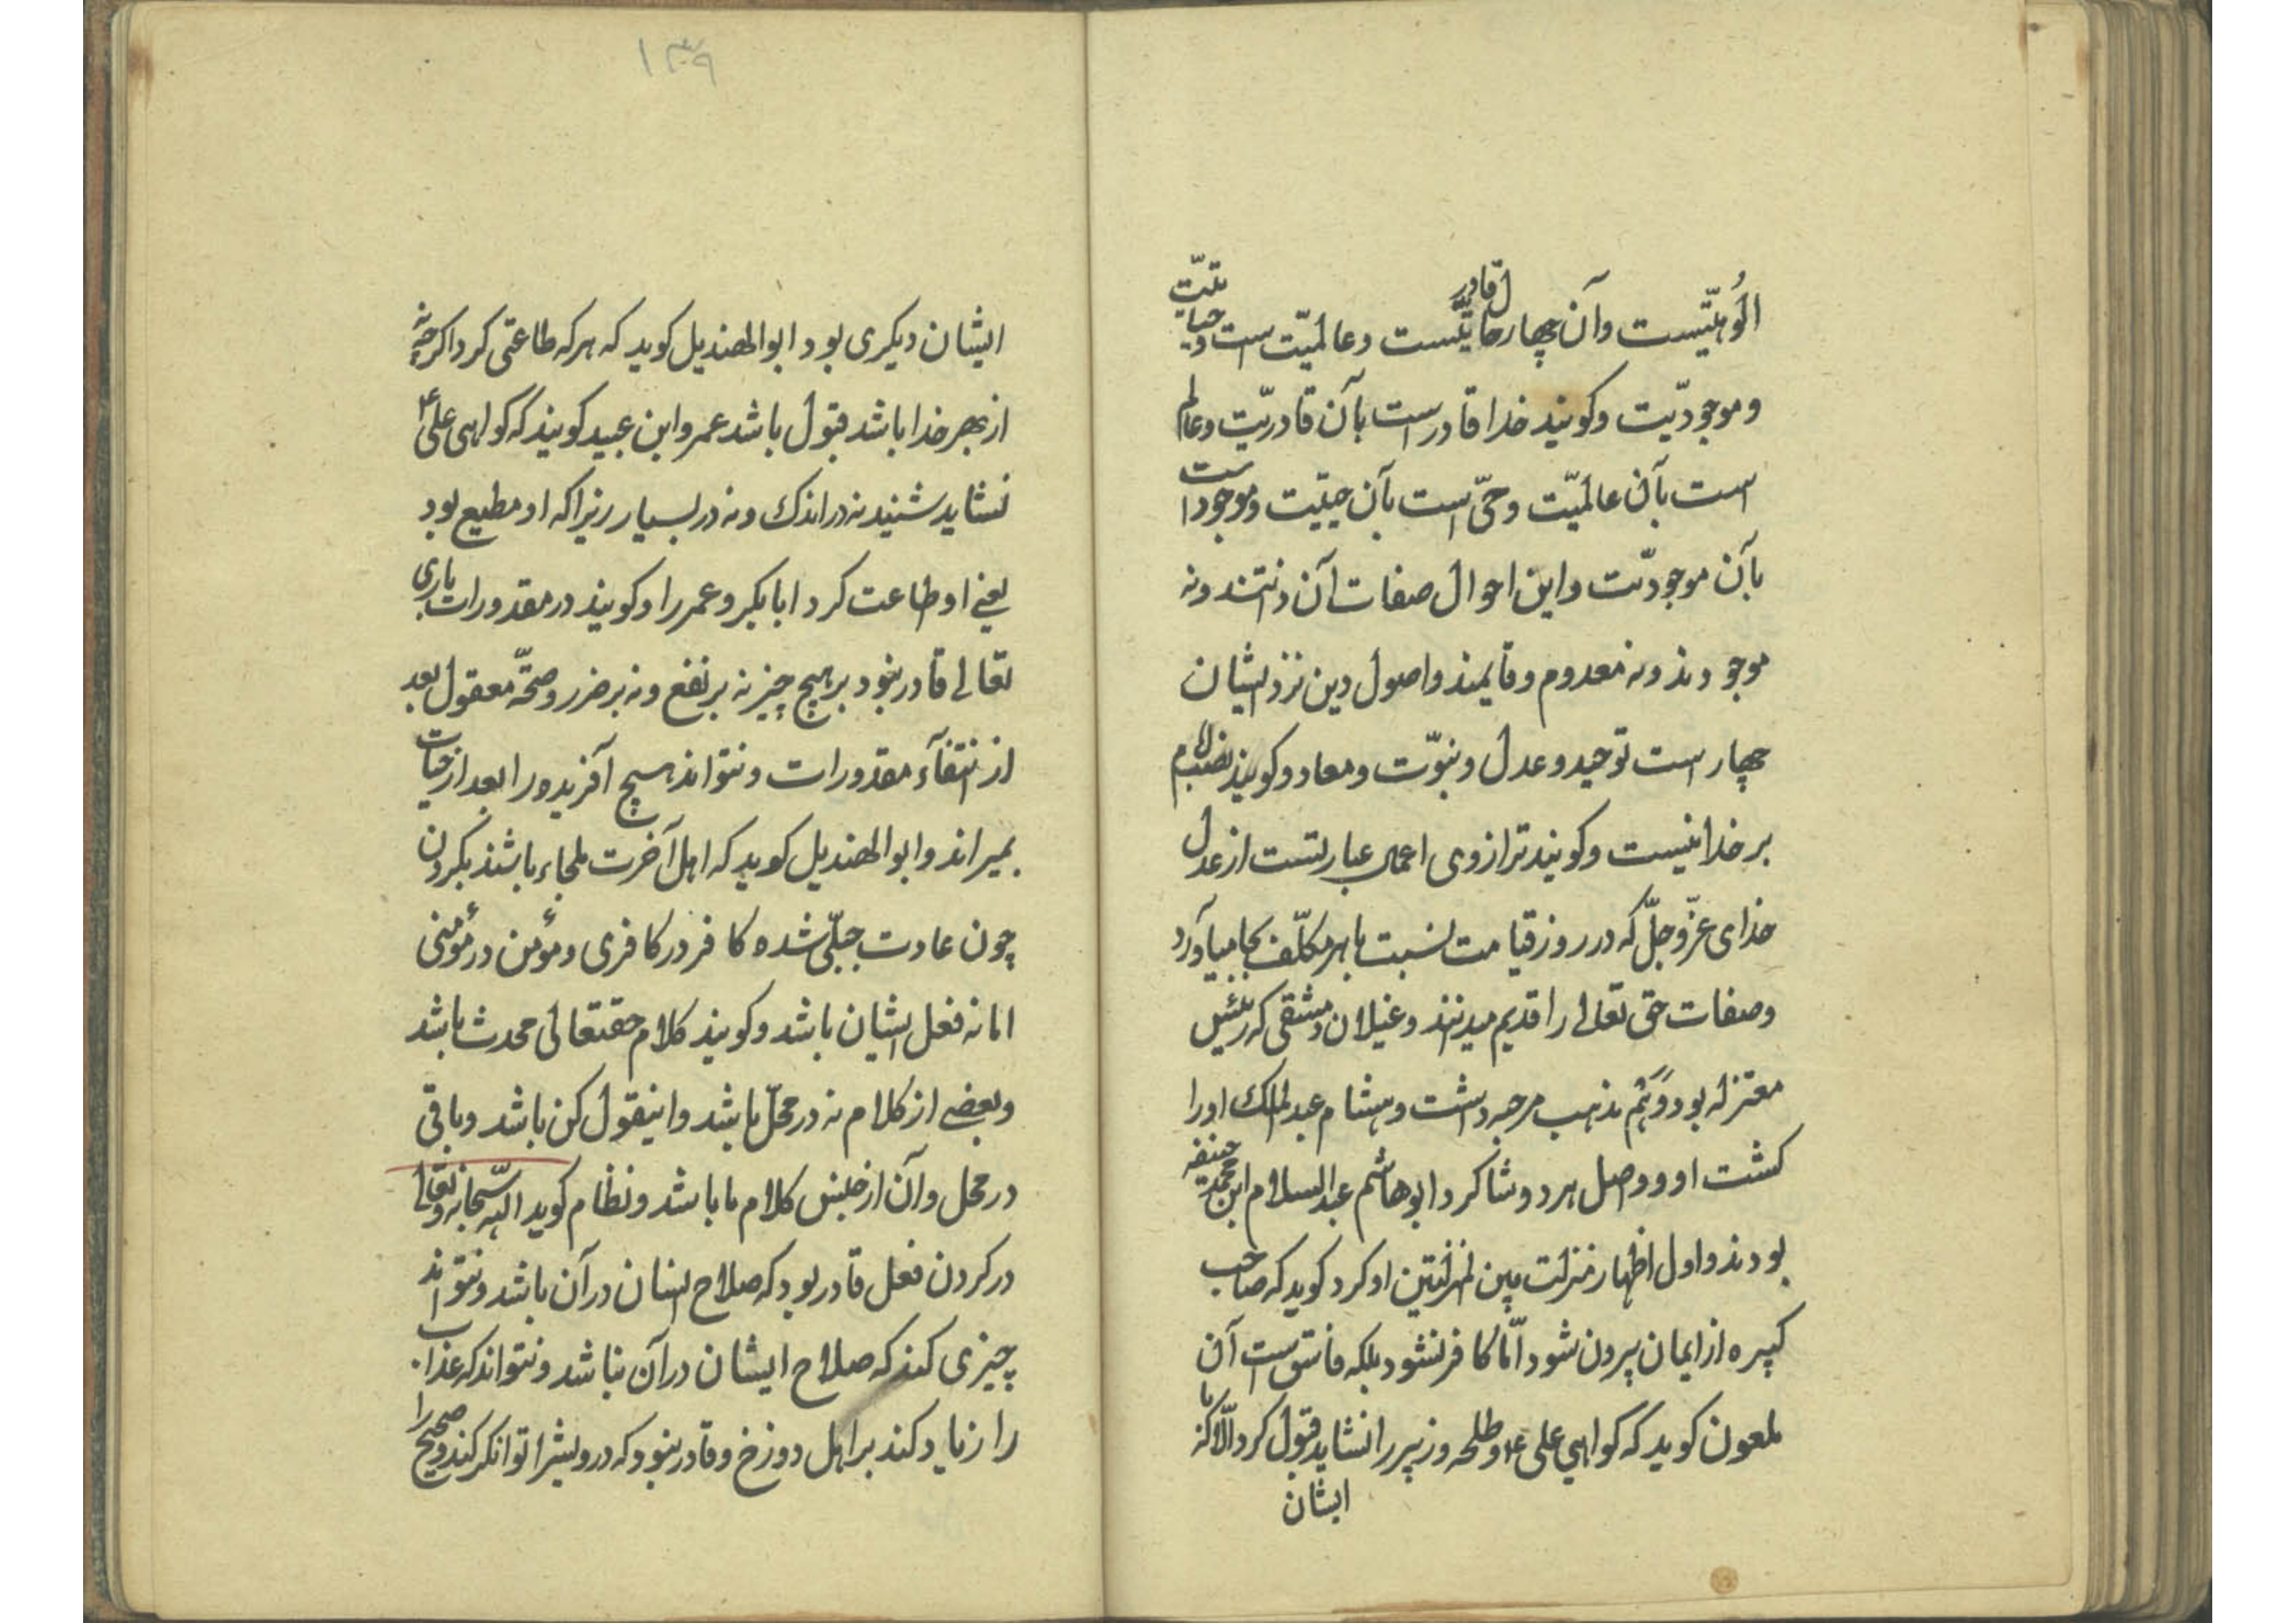 الُوهیّتیست وآن چهار حال قادریّتست وعالمیّت است وحیاتیّت
وموجودیّت وکویند خدا قادرست بآن قادریّت وعالم
است بآن عالمیّت وحیّ است بآن حییّت وموجود است
بآن موجودیّت واین احوال صفات آن ذاتند ونه
موجودند ونه معدوم وقایمند واصول دین نزد ایشان
چهار است توحید وعدل ونبوّت ومعاد وکویند نصب امام
بر خدا نیست وکویند ترازوی اعمال عبارتست از عدل
خدای عزّوجلّ که در روز قیامت نسبت با هر مکلّف بجا میآورد
وصفات حق تعالی را قدیم میدانند وغیلان دمشقی که رئیس
معتزله بود دوّیُم مذهب مرجیه داشت وهشام عبدالملک اورا
کشت او وواصل هر دو شاکرد ابوهاشم عبدالسلام ابن محمد حنیفه
بودند واول اظهار منزلت بین المنزلتین او کرد کوید که صاحب
کبیره از ایمان بیرون شود امّا کافر نشود بلکه فاسق است آن
ملعون کوید که کواهی علی ع وطلحه وزبیر را نشاید قبول کرد الّا که با
ایشان
۱۳۹
ایشان دیکری بود ابوالهذیل کوید که هر که طاعتی کرد اکر چه نه
از بهر خدا باشد قبول باشد عمرو ابن عبید کویند که کواهی علی ع
نشاید شنید نه در اندک ونه در بسیار زیرا که او مطیع بود
یعنی او طاعت کرد ابابکر وعمر را وکویند در مقدورات باری
تعالی قادر نبود بر هیچ چیز نه بر نفع ونه بر ضرر وصحّة معقول بعد
از انتفآء مقدورات ونتواند هیچ آفریدو را بعد از حیات
بمیراند وابوالهذیل کوید که اهل آخرت ملجاء باشند بکردن
چون عادت جبلّی شده کافر در کافری ومؤمن در مؤمنی
اما نه فعل ایشان باشد وکویند کلام حقتعالی محدث باشد
وبعضی از کلام نه در محلّ باشد واینقول کن باشد وباقی
در محل وآن از جنس کلام ما باشد ونظام کوید اللّه سبحانه وتعالی
در کردن فعل قادر بود که صلاح انسان در آن باشد ونتواند
چیزی کند که صلاح ایشان در آن نباشد ونتواند که عذاب
را زیاد کند بر اهل دوزخ وقادر نبود که درویشرا توانکر کند وصحیح را